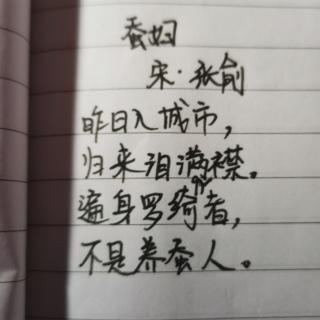 蚕妇
宋·张俞
昨日入城市，
归来泪满襟。
遍身罗绮者，
不是养蚕人。